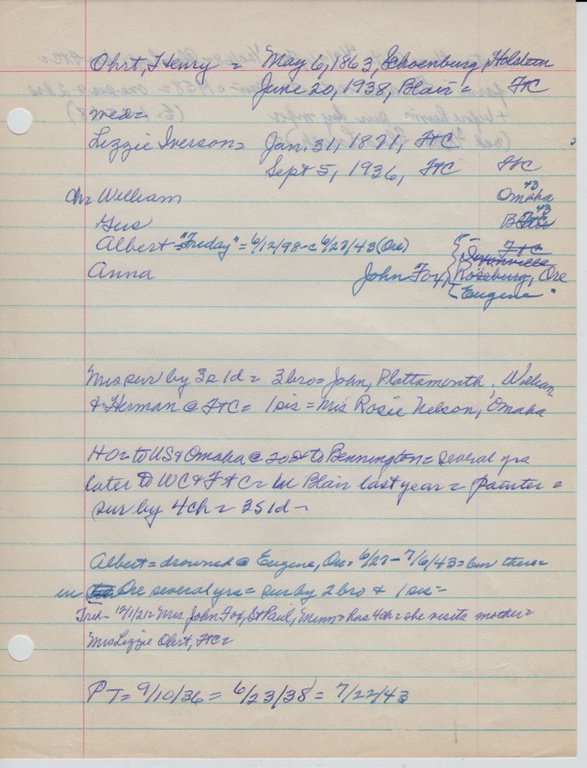 Ohrt, Henry = May 6, 1863, Schoenburg, Holstein
June 20, 1938, Blair = FtC
med=
Lizzie Iverson= Jan. 31, 1871, FtC
Sept 5, 1936, FtC FtC
Ch= William Omaha 43
Gus 43
Albert "Friday" = 6/12/98-c 6/27/43 (Ore) FtC
Anna John Fox, Roseburg, Ore
Eugene "
Mrs sur by 3s 1d = 3 bro= John, Plattsmouth, William
& Herman @ FtC= 1 sis= Mrs Rosie Nelson, Omaha
H O= to US & Omaha @ 20 = to Bennington= several yrs
later to WC & FtC= in Blair last year = painter =
sur by 4ch = 3s 1d -
Albert = drowned @ Eugene, Ore= 6/27-7/6/43= bur there=
in Ore several yrs= sur by 2 bro & 1 sis=
Trib- 12/1/21= Mrs John Fox, St Paul, Minn= has 4ch= she visits mother=
Mrs Lizzie Ohrt, FtC=
PT= 9/10/36 = 6/23/38 = 7/22/43